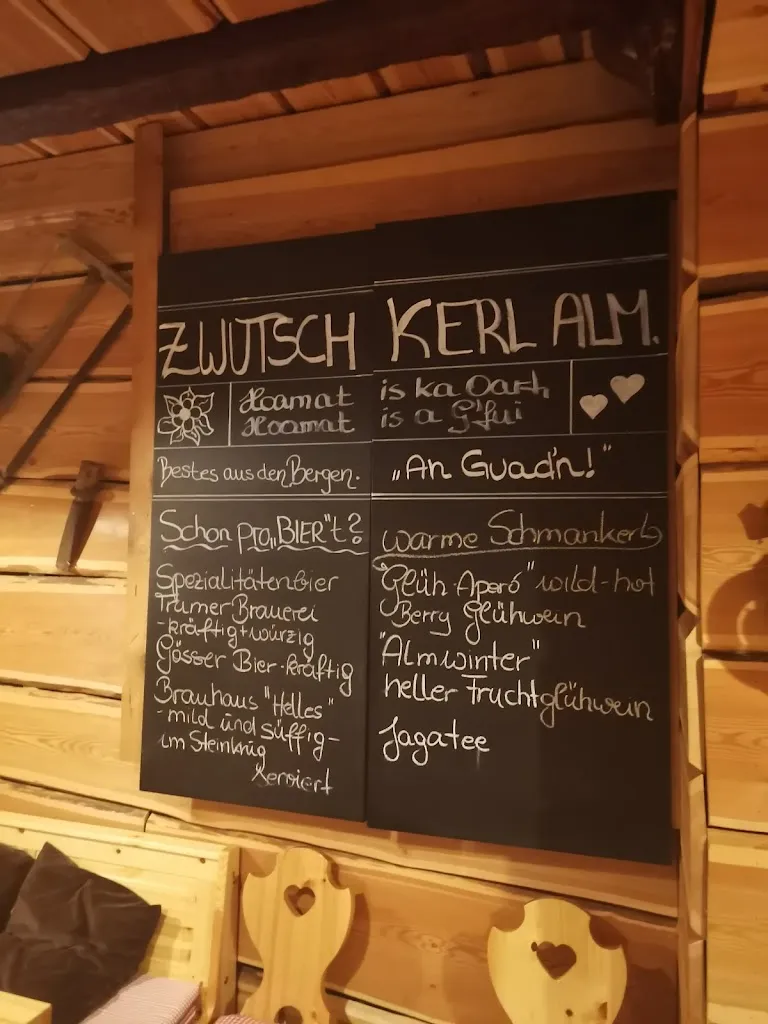 ZWUTSCH KERL ALM.
Hoamat is ka Oarh
Hoamat is a G'fui
Bestes aus den Bergen.
„An Guad'n!"
Schon pro„BIER"t?
Spezialitätenbier
Trumer Brauerei
-kräftig+würzig
Gösser Bier-kräftig
Brauhaus "Helles"
-mild und süffig-
im Steinkrug
serviert
warme Schmankerl
"Glüh-Aperó" wild-hot
Berry Glühwein
"Almwinter"
heller Fruchtglühwein
Jagatee